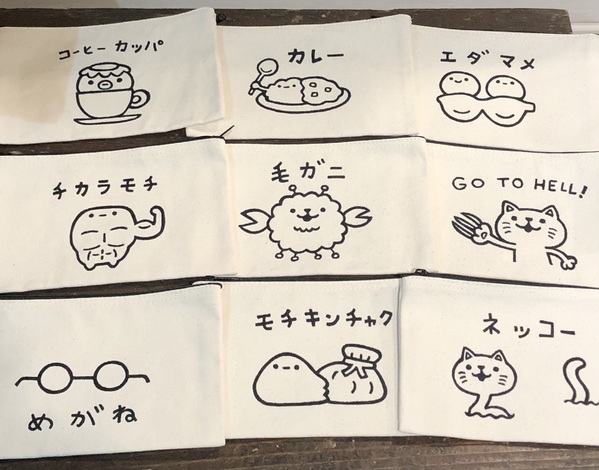 コーヒー カッパ
カレー
エダマメ
チカラモチ
毛ガニ
GO TO HELL!
めがね
モチキンチャク
ネッコー